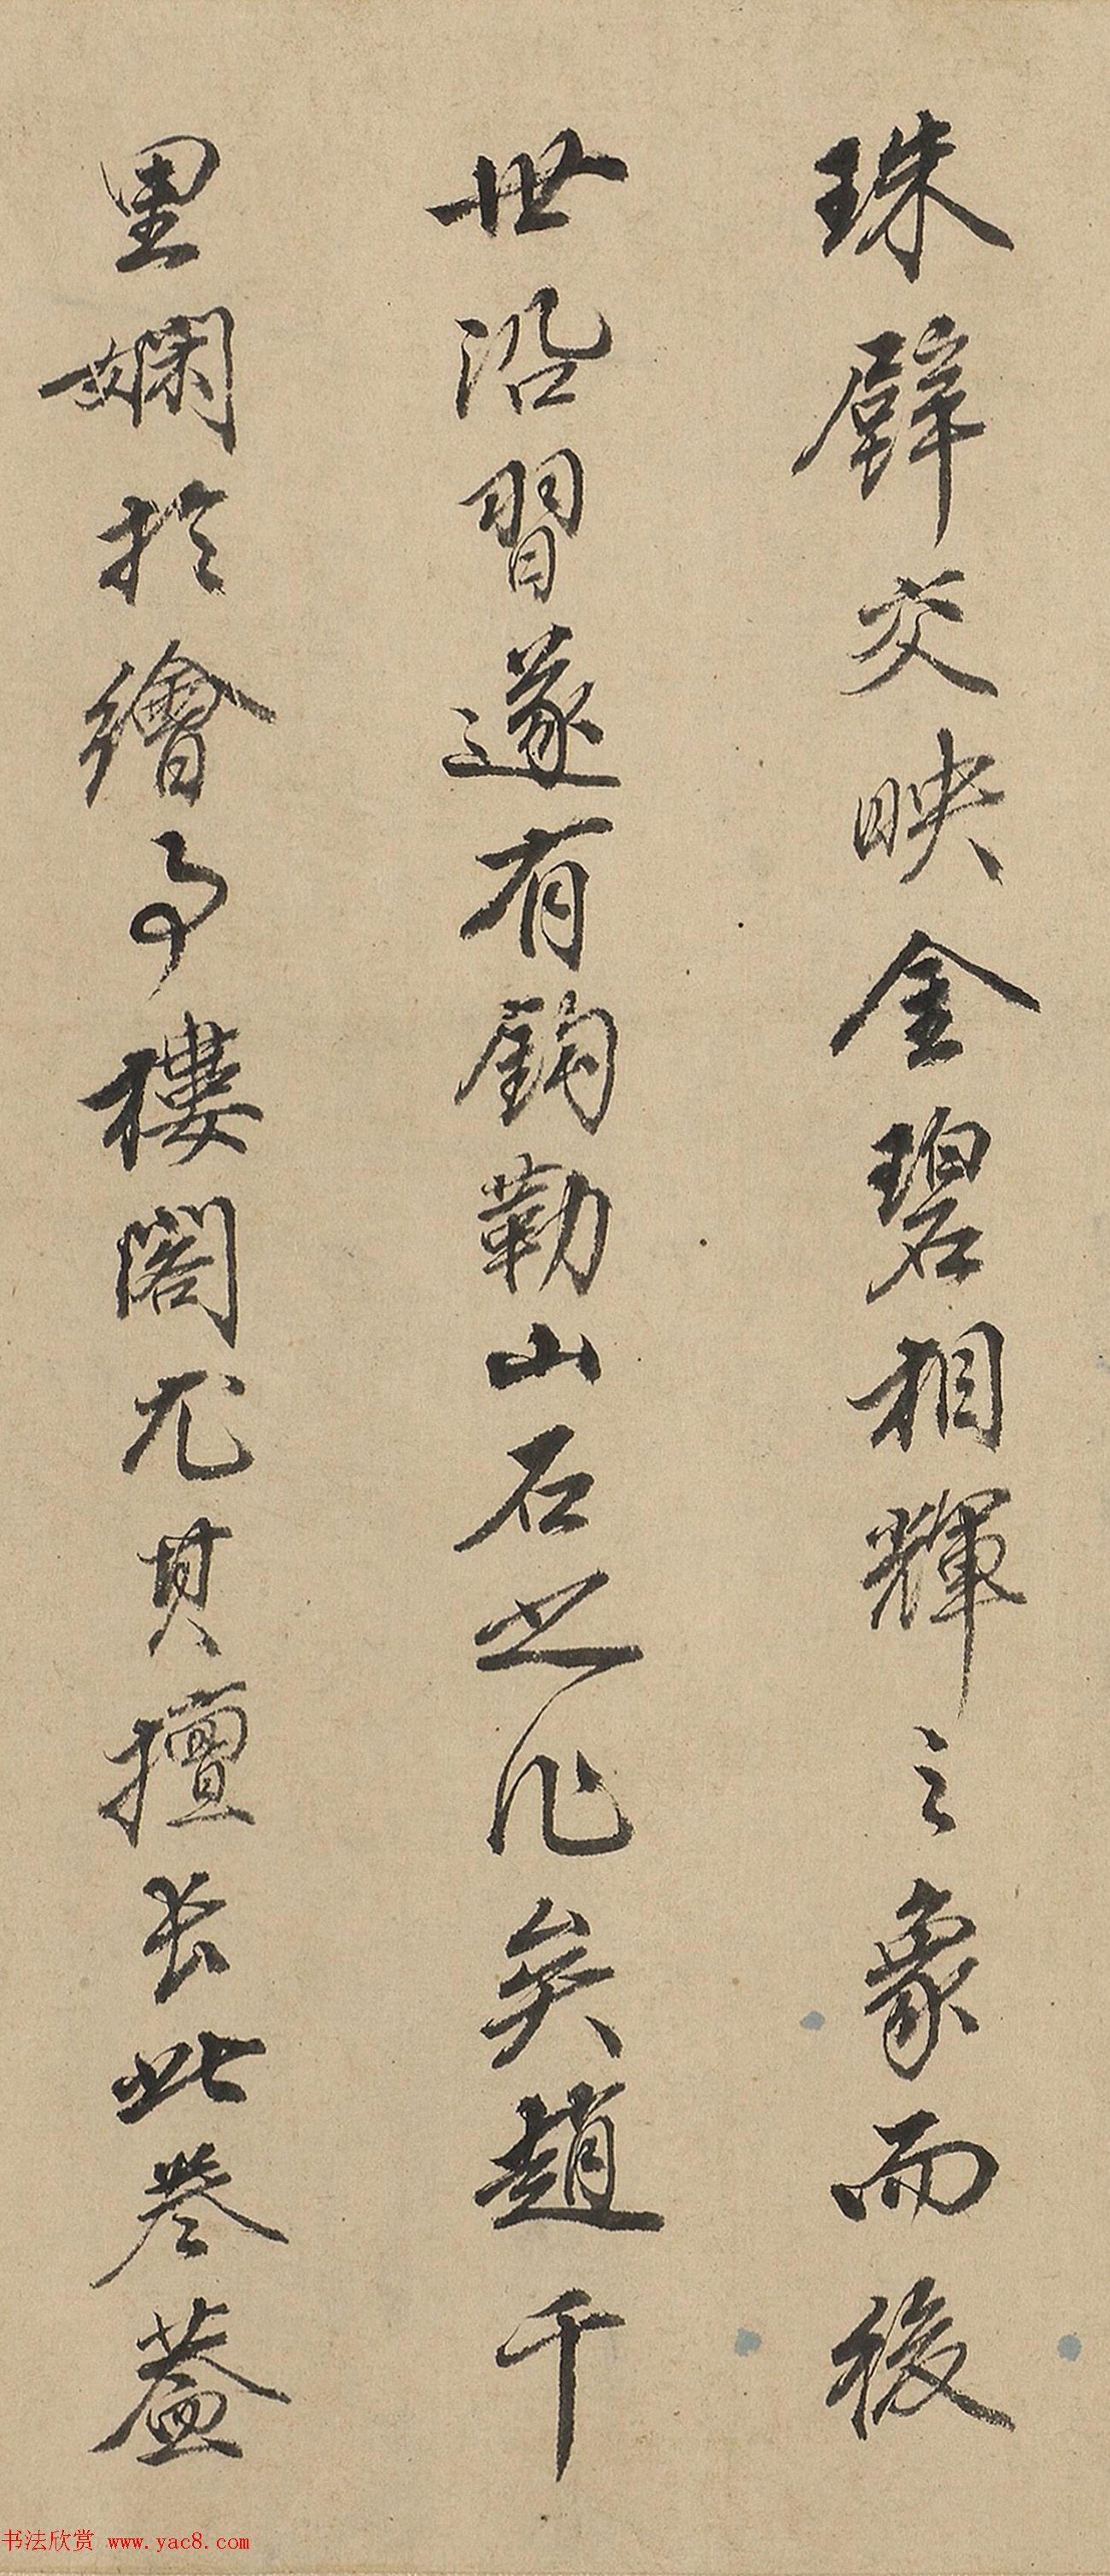 珠璧交映金碧相輝之象而後
世沿習遂有鈎勒山石之作矣趙千
里嫻於繪事樓閣尤其擅長此卷蓋
书法欣赏 www.yac8.com